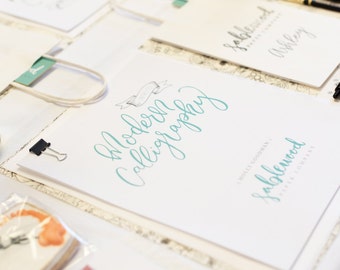 sablewood
PAPER COMPANY
Ashley
Modern
Calligraphy
sablewood
PAPER COMPANY